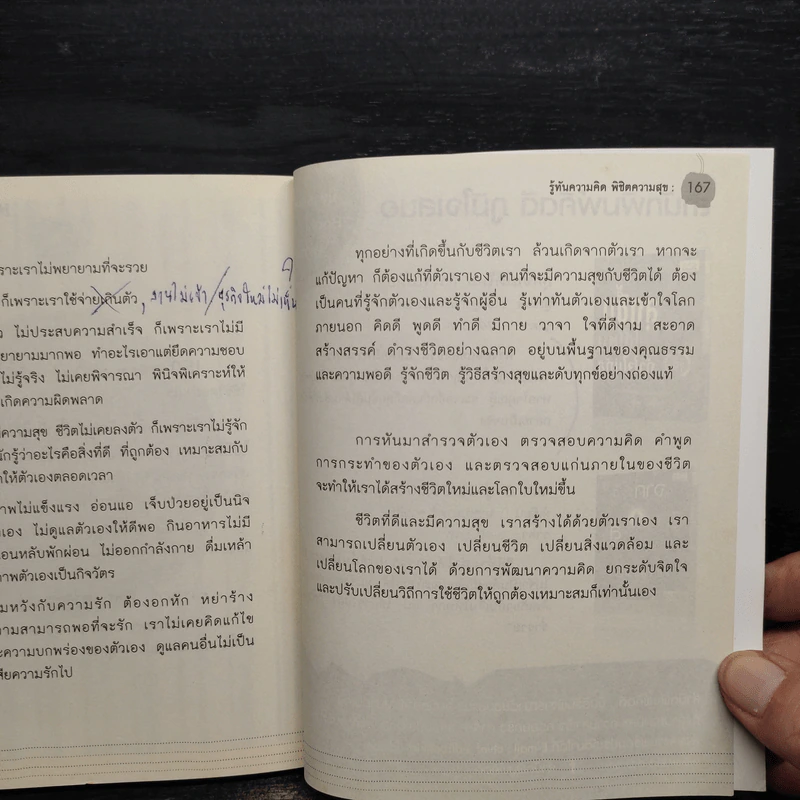 ราะเราไม่พยายามที่จะรวย
ก็เพราะเราใช้จ่ายเกินตัว, งานไม่เข้า/ธุรกิจใหม่ไม่เกิด
ไม่ประสบความสำเร็จ ก็เพราะเราไม่มี
ยายามมากพอ ทำอะไรเอาแต่ยึดความชอบ
ไม่รู้จริง ไม่เคยพิจารณา พินิจพิเคราะห์ให้
เกิดความผิดพลาด
ความสุข ชีวิตไม่เคยลงตัว ก็เพราะเราไม่รู้จัก
รู้ว่าอะไรคือสิ่งที่ดี ที่ถูกต้อง เหมาะสมกับ
ให้ตัวเองตลอดเวลา
าพไม่แข็งแรง อ่อนแอ เจ็บป่วยอยู่เป็นนิจ
เอง ไม่ดูแลตัวเองให้ดีพอ กินอาหารไม่มี
อนหลับพักผ่อน ไม่ออกกำลังกาย ดื่มเหล้า
าพตัวเองเป็นกิจวัตร
มหวังกับความรัก ต้องอกหัก หย่าร้าง
ามสามารถพอที่จะรัก เราไม่เคยคิดแก้ไข
ะความบกพร่องของตัวเอง ดูแลคนอื่นไม่เป็น
สียความรักไป
รู้ทันความคิด พิชิตความสุข : 167
ทุกอย่างที่เกิดขึ้นกับชีวิตเรา ล้วนเกิดจากตัวเรา หากจะ
แก้ปัญหา ก็ต้องแก้ที่ตัวเราเอง คนที่จะมีความสุขกับชีวิตได้ ต้อง
เป็นคนที่รู้จักตัวเองและรู้จักผู้อื่น รู้เท่าทันตัวเองและเข้าใจโลก
ภายนอก คิดดี พูดดี ทำดี มีกาย วาจา ใจที่ดีงาม สะอาด
สร้างสรรค์ ดำรงชีวิตอย่างฉลาด อยู่บนพื้นฐานของคุณธรรม
และความพอดี รู้จักชีวิต รู้วิธีสร้างสุขและดับทุกข์อย่างถ่องแท้
การหันมาสำรวจตัวเอง ตรวจสอบความคิด คำพูด
การกระทำของตัวเอง และตรวจสอบแก่นภายในของชีวิต
จะทำให้เราได้สร้างชีวิตใหม่และโลกใบใหม่ขึ้น
ชีวิตที่ดีและมีความสุข เราสร้างได้ด้วยตัวเราเอง เรา
สามารถเปลี่ยนตัวเอง เปลี่ยนชีวิต เปลี่ยนสิ่งแวดล้อม และ
เปลี่ยนโลกของเราได้ ด้วยการพัฒนาความคิด ยกระดับจิตใจ
และปรับเปลี่ยนวิถีการใช้ชีวิตให้ถูกต้องเหมาะสมก็เท่านั้นเอง